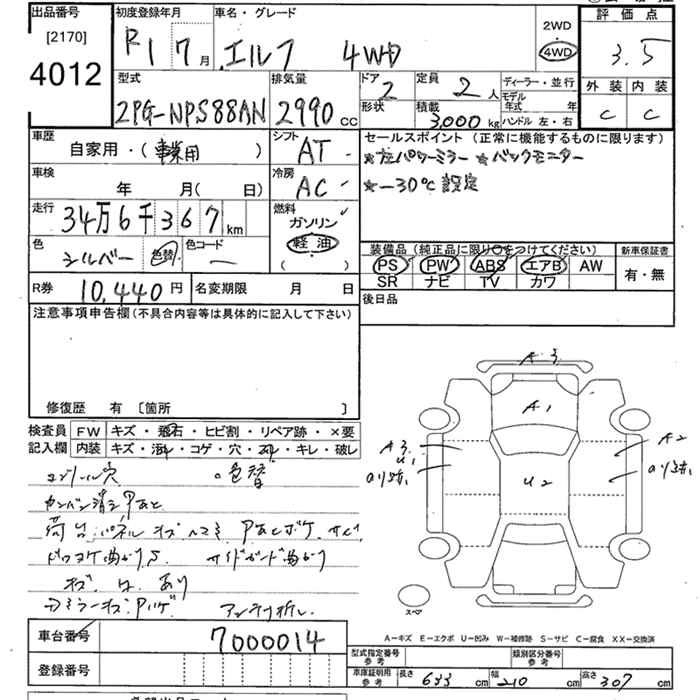 出品番号
[2170]
4012
初度登録年月
R1 7月
車名・グレード
エルフ 4WD
2WD
4WD
評価点
3.5
外装 内装
C C
型式
2PG-NPS88AN
排気量
2990 cc
ドア
2
形状
定員
2人
積載
3,000kg
ディーラー・並行
モデル年式 年
ハンドル 左・右
車歴
自家用・(事業用)
シフト
AT
車検
年 月(日)
冷房
AC
走行
34万6千367km
燃料
ガソリン
軽油
( )
色
シルバー
色替
色コード
R券
10,440円
名変期限 月 日
セールスポイント(正常に機能するものに限ります)
★左パワーミラー ★バックモニター
★-30℃設定
装備品(純正品に限り○をつけてください)
PS PW ABS エアB AW
SR ナビ TV カワ
新車保証書
有・無
後日品
注意事項申告欄(不具合内容等は具体的に記入して下さい)
修復歴 有 〔箇所 〕
検査員記入欄
FW キズ・飛石・ヒビ割・リペア跡・×要
内装 キズ・汚れ・コゲ・穴・スレ・キレ・破レ
コンソール穴 ○色替
カンバン消シアト
荷台パネル キズ ヘコミ Pあとボケ サビ
サイドガード曲がり
キズ 凹 あり
ミラーキズ Pハゲ アンテナ折レ
A3
A1
A3
U1
U2
A2
スペア
A−キズ E−エクボ U−凹み W−補修跡 S−サビ C−腐食 XX−交換済
車台番号
7000014
登録番号
型式指定番号 参考
類別区分番号 参考
車庫証明用 参考
長さ 633cm 幅 210cm 高さ 307cm